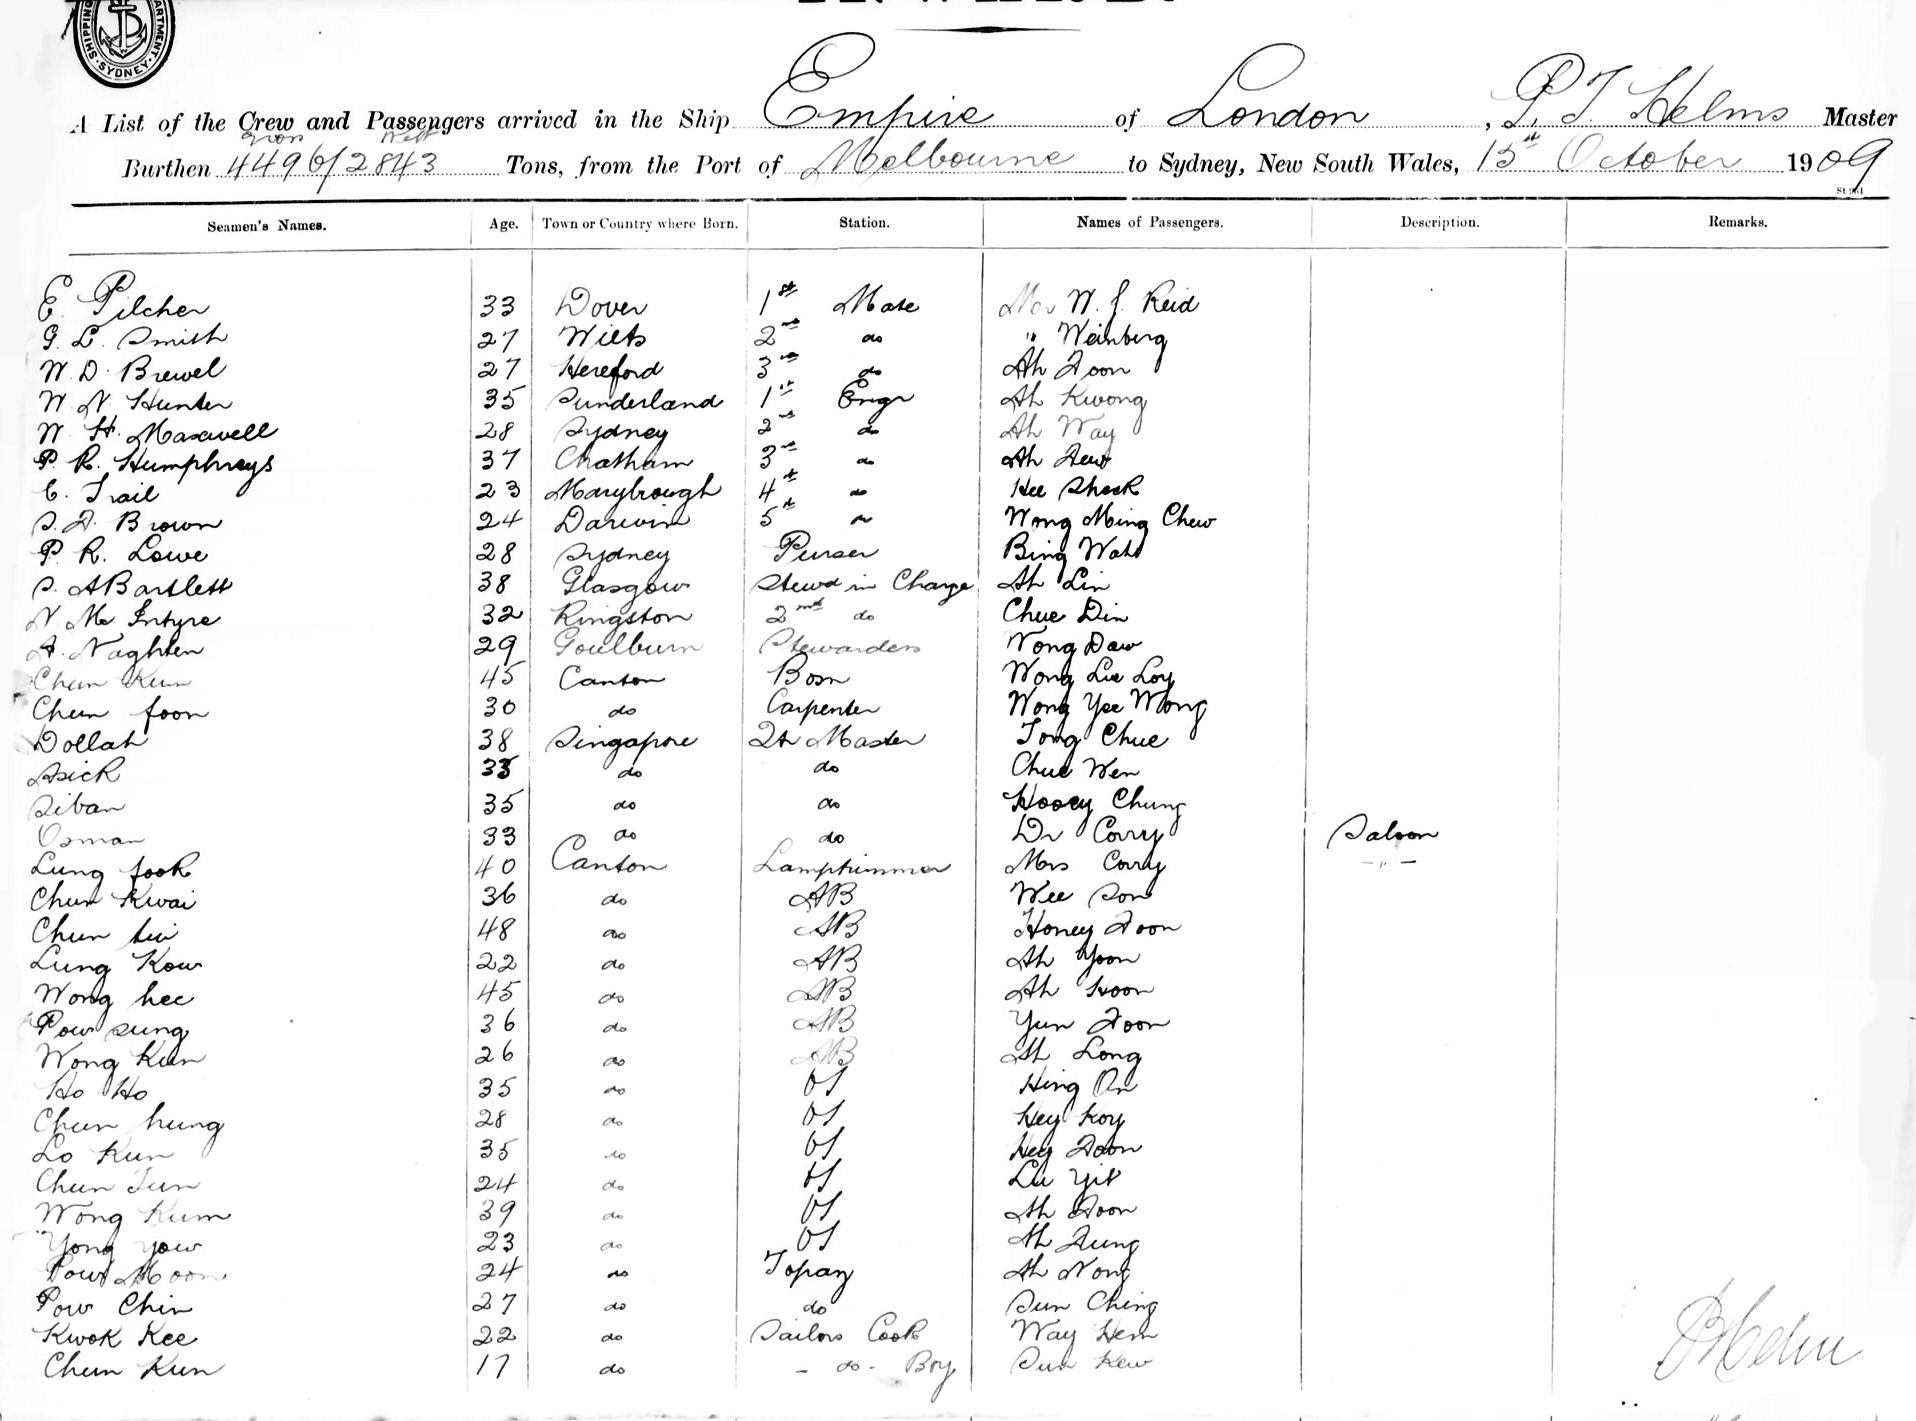 SHIPPING DEPARTMENT SYDNEY
A List of the Crew and Passengers arrived in the Ship Empire of London, P. T. Helms Master
Gross Nett
Burthen 4496/2843 Tons, from the Port of Melbourne to Sydney, New South Wales, 15th October 1909
Seamen's Names. Age. Town or Country where Born. Station. Names of Passengers. Description. Remarks.
E. Pilcher 33 Dover 1st Mate W. J. Reid
G. L. Smith 27 Wilts 2nd do " Weinberg
W. D. Brewel 27 Hereford 3rd do Ah Foon
W. N. Hunter 35 Sunderland 1st Engr Ah Kwong
W. H. Maxwell 28 Sydney 2nd do Ah Way
P. R. Humphreys 37 Chatham 3rd do Ah Few
C. Trail 23 Marybrough 4th do Hee Sheck
S. F. Brown 24 Darwin 5th do Wong Ming Chew
P. R. Lowe 28 Sydney Purser Bing Wah
S. A Bartlett 38 Glasgow Stewd in Charge Ah Lin
N. Mc Intyre 32 Kingston 2nd do Chue Din
A. Naghten 29 Goulburn Stewardess Wong Daw
Chun Kun 45 Canton Bosn Wong Lie Loy
Chun foon 30 do Carpenter Wong Yee Wong
Dollah 38 Singapore Qr Master Tong Chue
Asick 33 do do Chue Wen
Siban 35 do do Hooey Chung
Osman 33 do do Dr Corry Saloon
Lung fook 40 Canton Lamptrimmer Mrs Corry - " -
Chun Kwai 36 do AB Wee Son
Chun 48 do AB Honey Foon
Lung Kow 22 do AB Ah Yoon
Wong hee 45 do AB Ah Hoon
Pow sung 36 do AB Yun Foon
Wong Kun 26 do AB Ah Long
Ho Ho 35 do OS Hing On
Chun hung 28 do OS Hey Koy
Lo Kun 35 do OS Hey Foon
Chun Tun 24 do OS Lu Yit
Wong Kum 39 do OS Ah Foon
Yong yow 23 do OS Ah Fung
Pow Moon 24 do Topaz Ah Wong
Pow Chin 27 do do Sun Ching
Kwok Kee 22 do Sailors Cook Way Hem
Chun Kun 17 do - do - Boy Sun Kew